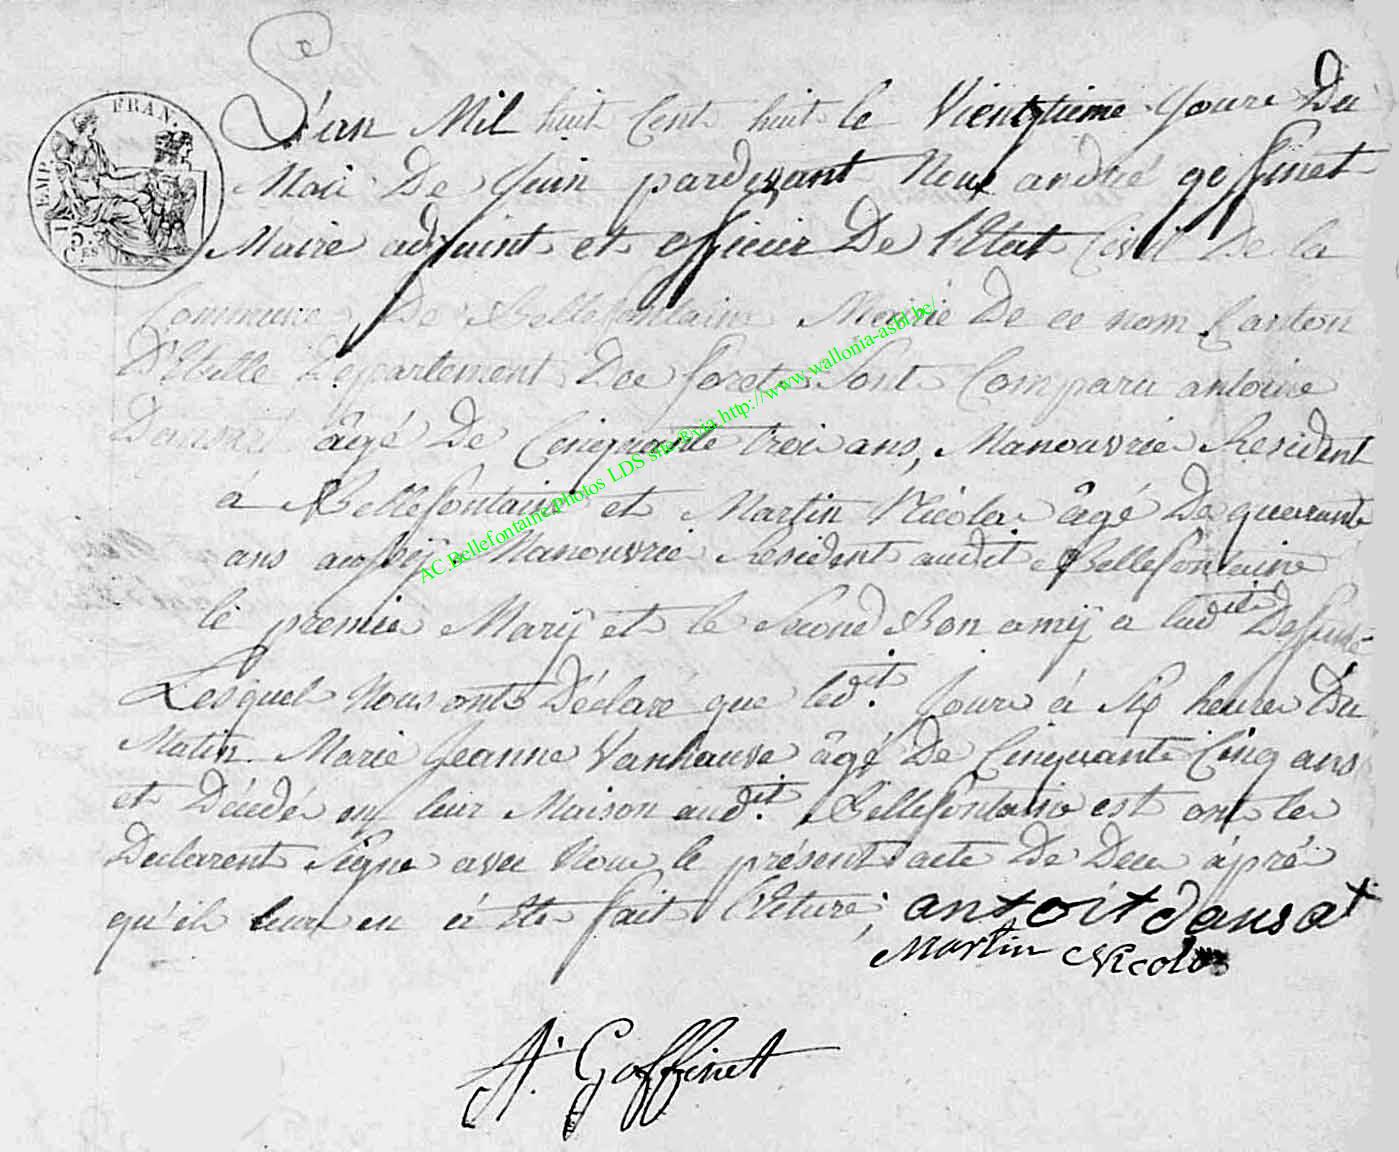 EMP. FRAN.
75. CES
L'an Mil huit Cent huit le Vientgtieme Joure Du
Moii De Juin pardevant Nous andré goffinet
Maire adjoint et officier De l'Etat Civil De la
Commune De Bellefontaine Mairie De ce nom Canton
D'Etalle Departement Dee foret Sont Comparu antoine
âgé De Cinquante troi ans, Manouvrie Resident
à Bellefontaine et Martin Nicola âgé De quarante
ans aussÿ Manouvrie Resident audit Bellefontaine
le premie Marÿ et le Second Bon amÿ a ladite Defunte
Lesquel Nous onts Déclaré que ledit. Jour à Six heure Du
Matin Marie Jeanne Vanhauve âgé De Cinquante Cinq ans
et Décédé en leur Maison audit. Bellefontaine est ont les
Declarent Signe avec Nous le présent acte De Dece àpré
qu'il leur en à ete fait l'eture; antoit dansat
Martin Nicolas
A. Goffinet
AC.Bellefontaine.Photos LDS site®via http://www.wallonia-asbl.be/